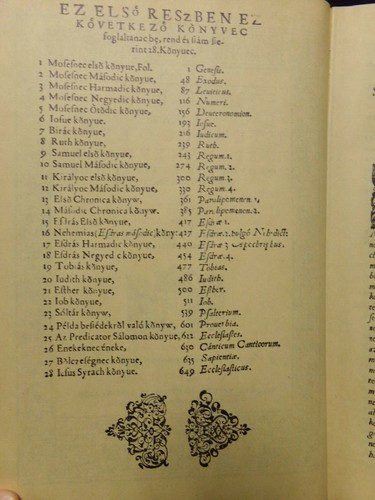 EZ ELSŐ RESZBEN EZ
KŐVETKEZŐ KŐNYVEC
foglaltanac bę, rend és ſzám ſze-
rint 28. Kŏnyuec.
1 Moſeſnec elsŏ kŏnyue, Fol. 1 Geneſis.
2 Moſeſnec Máſodic kŏnyue, 48 Exodus.
3 Moſeſnec Harmadic kŏnyue, 87 Leuiticus.
4 Moſeſnec Negyedic kŏnyue, 116 Numeri.
5 Moſeſnec Ŏtŏdic kŏnyue, 156 Deuteronomium.
6 Ioſue kŏnyue. 193 Ioſue.
7 Birác kŏnyue, 216 Iudicum.
8 Ruth kŏnyue, 239 Ruth.
9 Samuel elsŏ kŏnyue, 243 Regum. 1.
10 Samuel Máſodic kŏnyue, 274 Regum. 2.
11 Királyoc elsŏ kŏnyue, 300 Regum. 3.
12 Királyoc Máſodic kŏnyue, 330 Regum. 4.
13 Elsŏ Chronica kŏnyw, 361 Paralipomenon 1.
14 Máſodic Chronica kŏnyw. 385 Paralipomenon 2.
15 Eſdrás Elsŏ kŏnyue, 417 Eſdræ 1.
16 Nehemias (Eſdras máſodic, kŏny: 427 Eſdræ 2. vulgò Neh: dict:
17 Eſdrás Harmadic kŏnyue, 440 Eſdræ 3. Apochriphus.
18 Eſdrás Negyed c kŏnyue, 454 Eſdræ 4.
19 Tobiás kŏnyue, 477 Tobias.
20 Iudith kŏnyue, 486 Iudith.
21 Eſther kŏnyue, 500 Eſther.
22 Iob kŏnyue, 511 Iob.
23 Sóltár kŏnyw, 539 Pſalterium.
24 Pèlda beſédekrŏl való kŏnyw, 601 Prouerbia.
25 Az Predicator Sálomon kŏnyue, 622 Eccleſiaſtes.
26 Enekeknec éneke, 630 Cánticum Canticorum.
27 Bŏlczeſégnec kŏnyue, 635 Sapientiæ.
28 Ieſus Syrach kŏnyue, 649 Eccleſiaſticus.